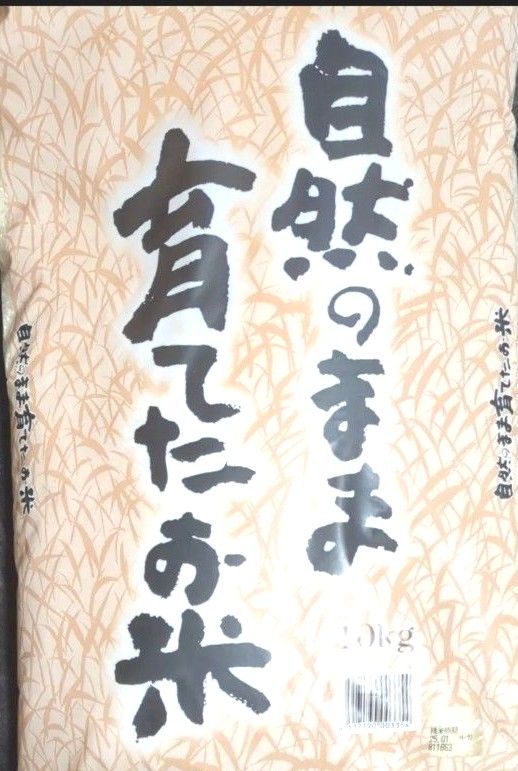 自然のまま
育てたお米
自然のまま育てたお米
自然のまま育てたお米
10kg
精米時期
25.01
811863